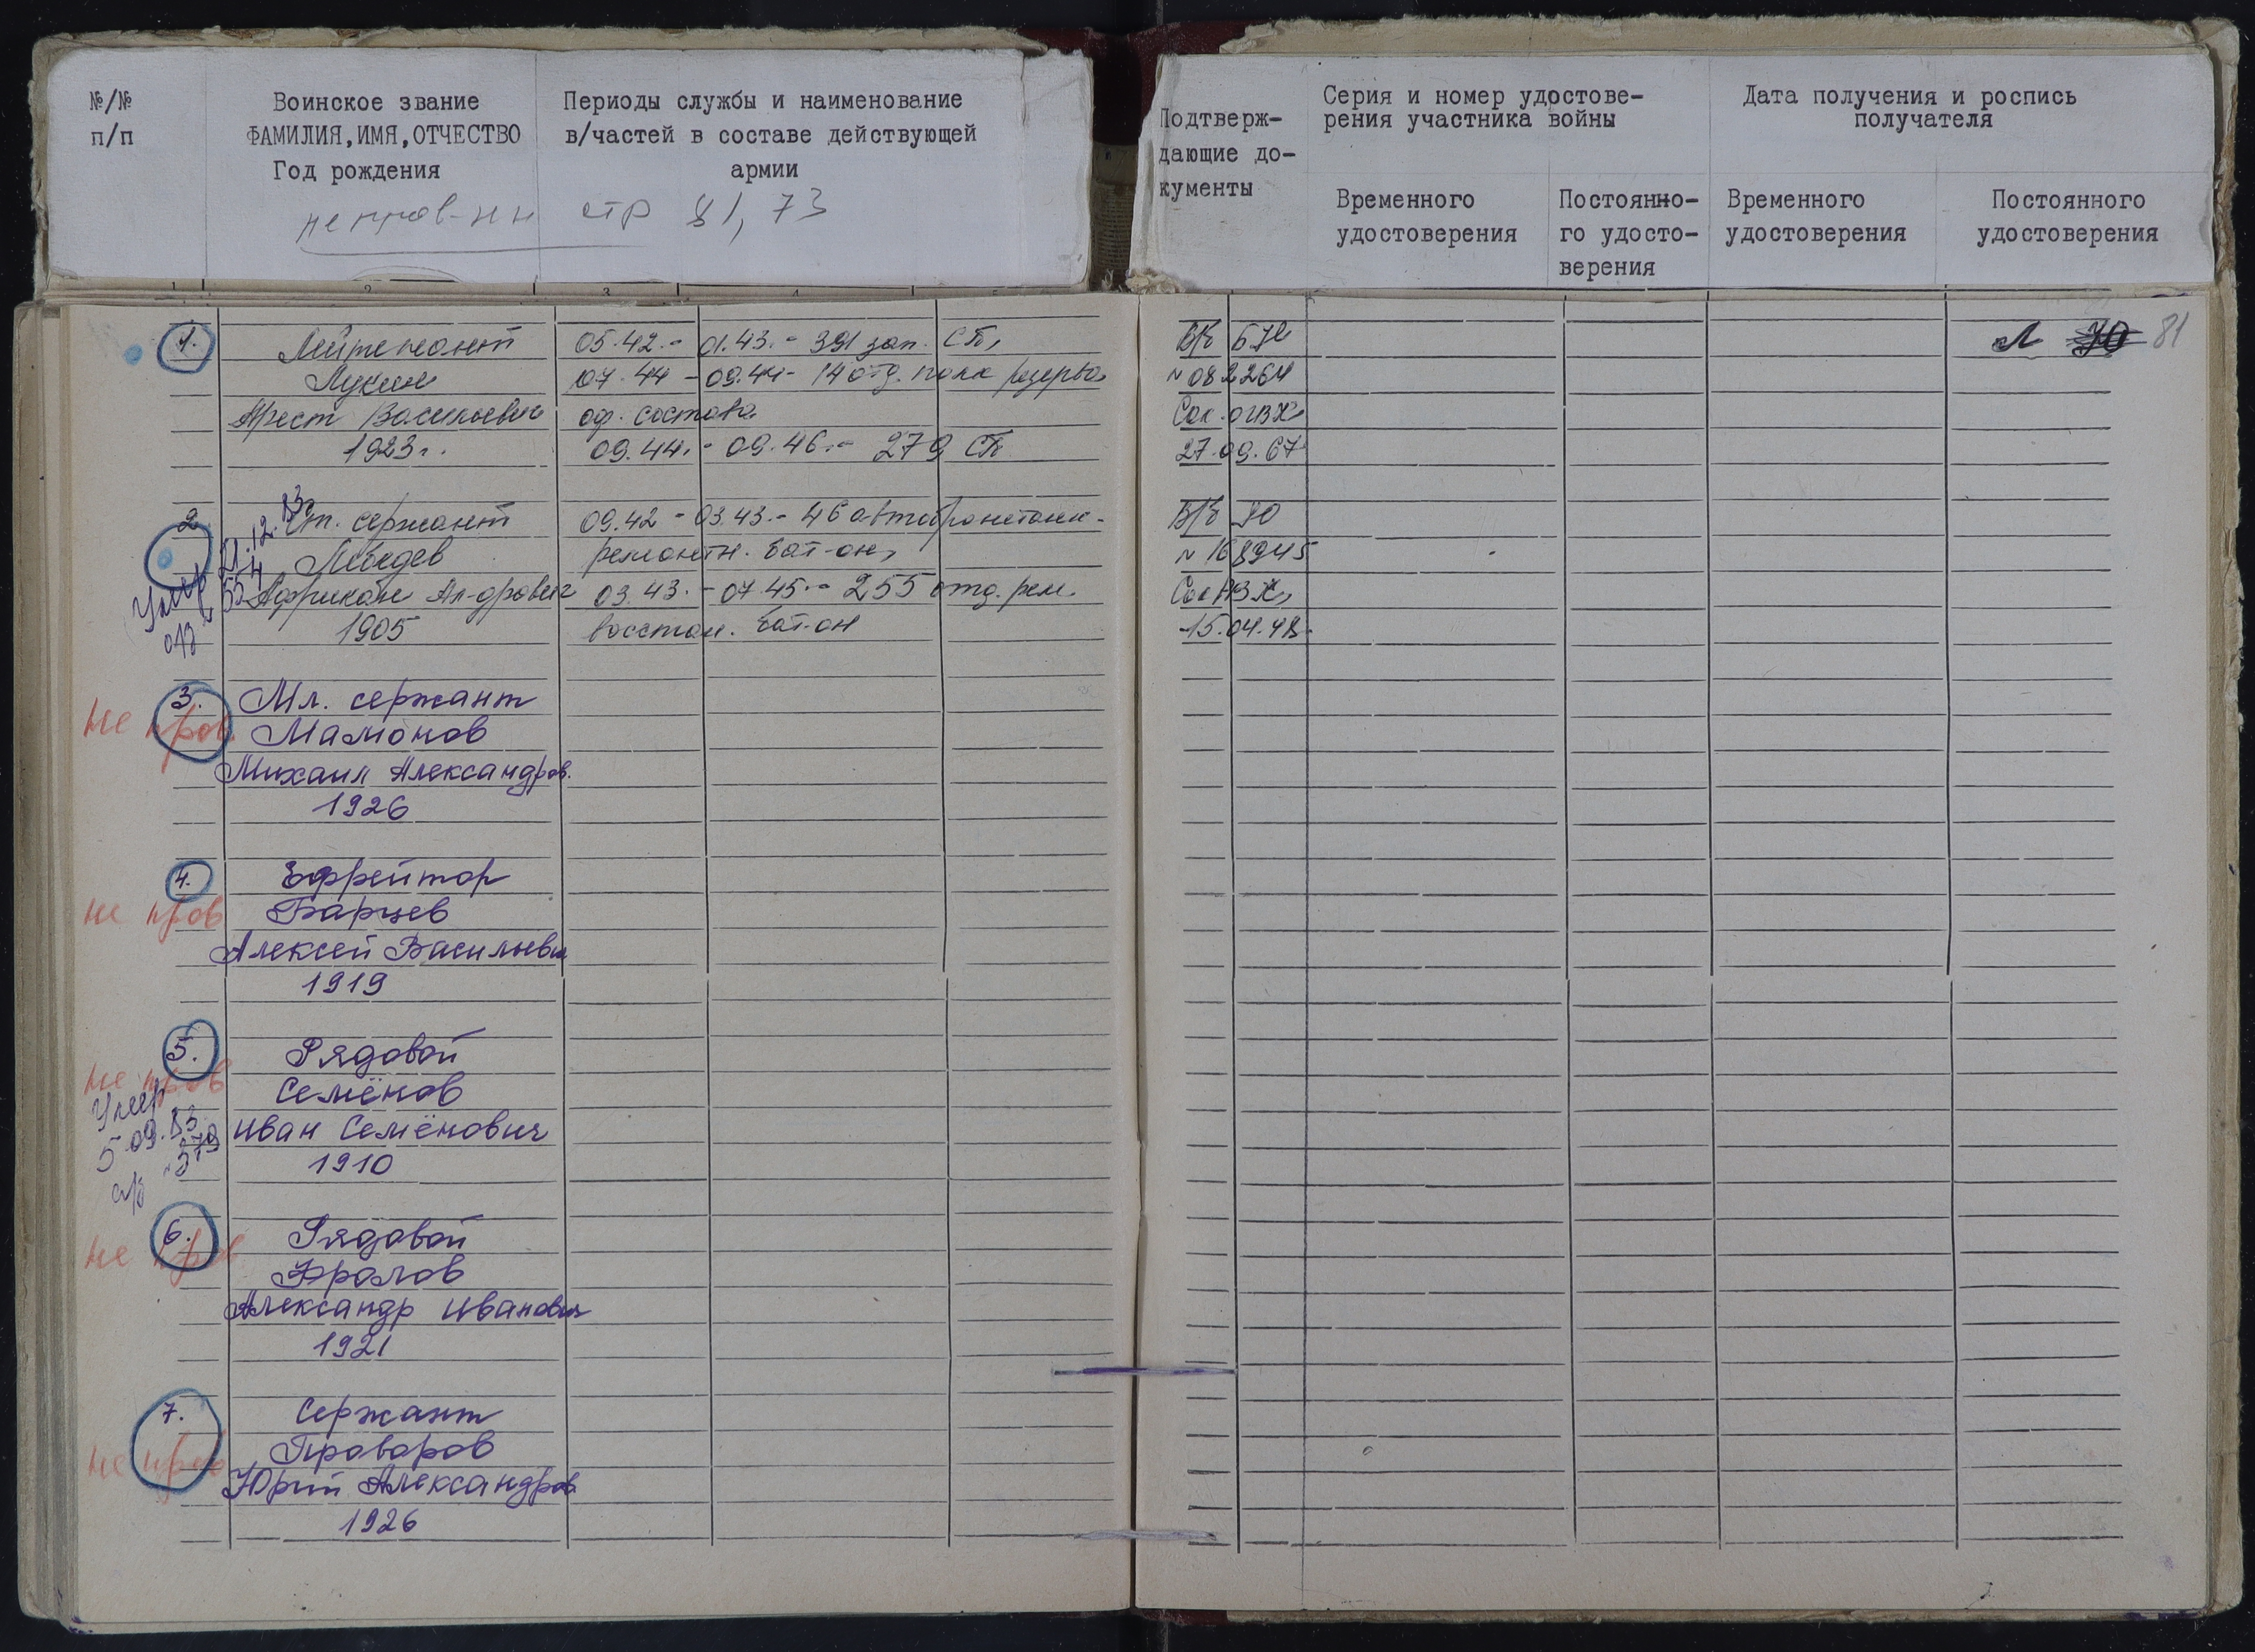 №/№
п/п
Воинское звание
ФАМИЛИЯ, ИМЯ, ОТЧЕСТВО
Год рождения
Периоды службы и наименование
в/частей в составе действующей
армии
не пров-нн стр 81, 73
Подтверж-
дающие до-
кументы
Серия и номер удостове-
рения участника войны
Временного
удостоверения
Постоянно-
го удосто-
верения
Дата получения и роспись
получателя
Временного
удостоверения
Постоянного
удостоверения
Л 81
1. Лейтенант
Лукин
Орест Васильевич
1923г.
05.42.- 01.43.- 391 зап. СП,
07.44 - 09.44- 14 отд. полк резерва
оф. состава
09.44.- 09.46.- 279 СП
В/б
№ 082264
Сок. ОГВК,
27.09.67
2. Ст. сержант
Лебедев
Африкан Ал-дрович
1905
Умер 21.12.83
а/з 554
09.42 - 03.43.- 46 автобронетанк-
ремонтн. бат-он,
03.43.- 07.45.- 255 отд. рем.
восстан. бат-он
В/б
№ 168945
Сок РВК,
15.04.48
3. Мл. сержант
не пров
Мамонов
Михаил Александров.
1926
4. Ефрейтор
не пров
Барцев
Алексей Васильевич
1919
5. Рядовой
не пров
Семёнов
Иван Семёнович
1910
Умер
5.09.83
а/з №379
6. Рядовой
не пров
Фролов
Александр Иванович
1921
7. Сержант
не пров
Проворов
Юрий Александров.
1926